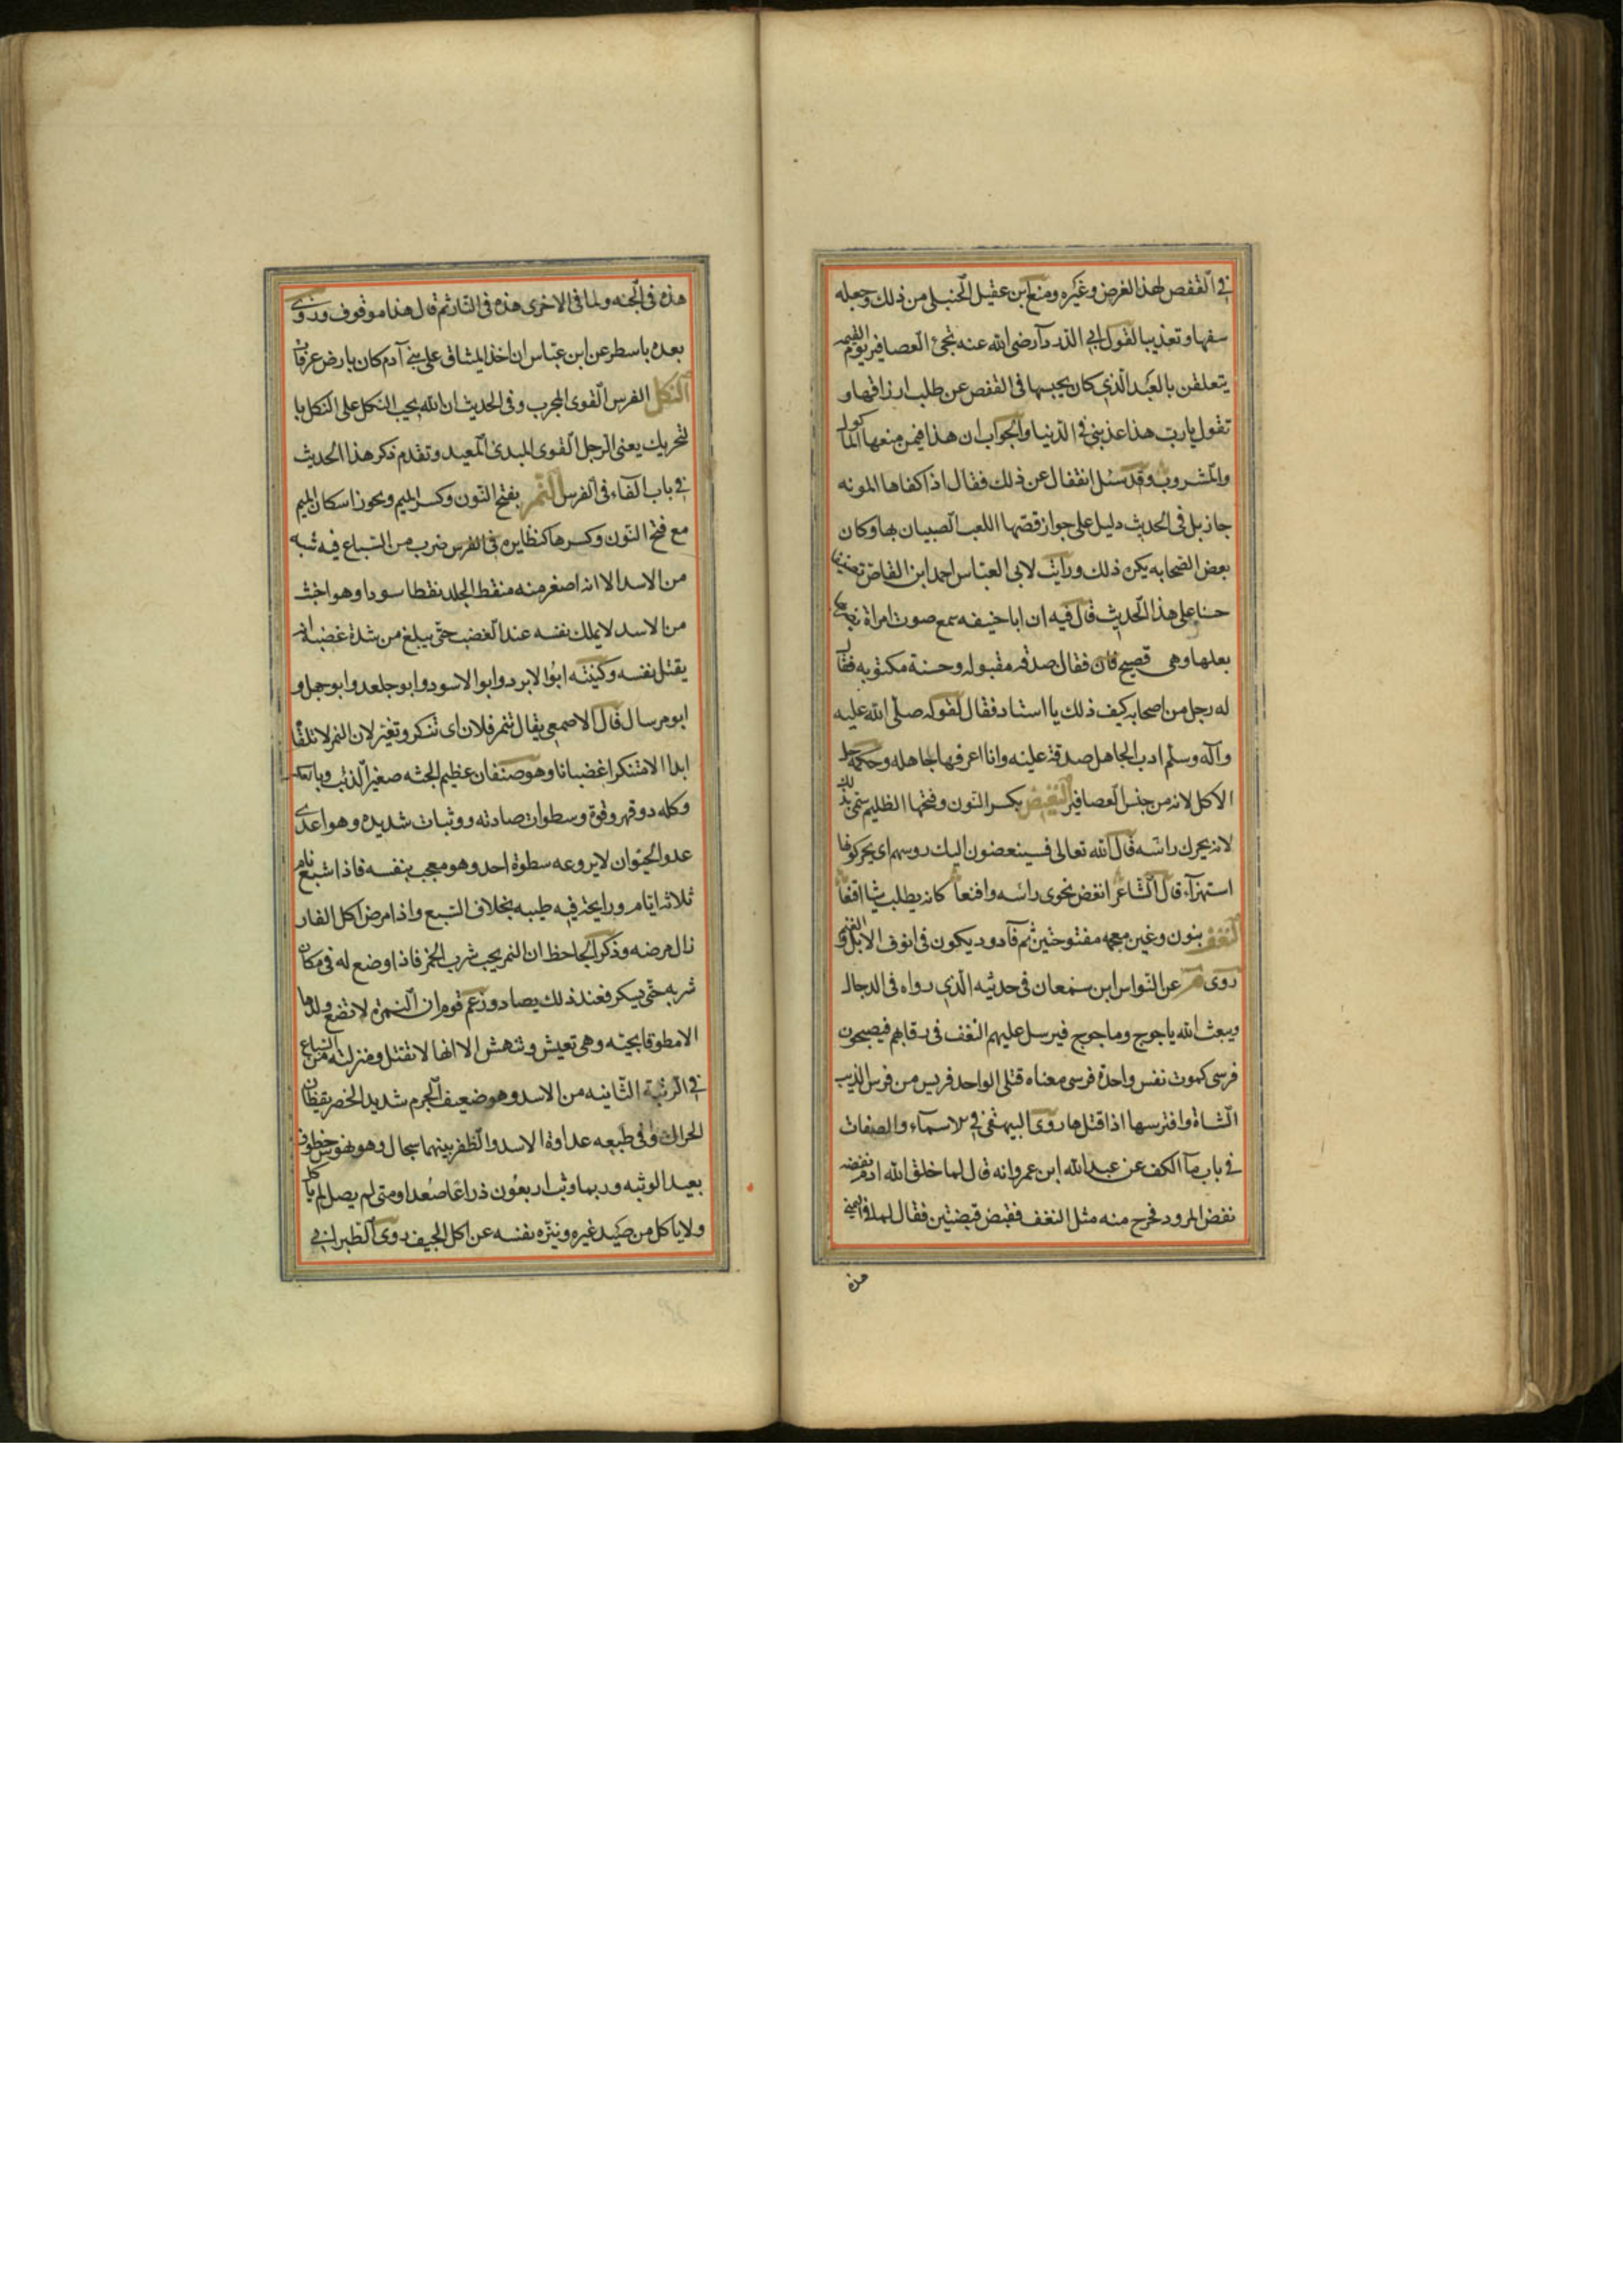 في القفص لهذا الغرض وغيره ومنع ابن عقيل الحنبلي من ذلك وجعله
سفها وتعذيبا لقول ابي الدرداء رضي الله عنه تجئ العصافير يوم القيمه
يتعلقن بالعبد الذي كان يحبسها في القفص عن طلب ارزاقها و
تقول يارب هذا عذبني في الدنيا والجواب ان هذا فيمن منعها الماكول
والمشروب وقد سئل القفال عن ذلك فقال اذا كفاها المونه
جاز بل في الحديث دليل على جواز قصها اللعب الصبيان بها وكان
بعض الصحابه يكن ذلك ورايت لابي العباس احمد ابن القاص تصنيفا
حسنا على هذا الحديث قال فيه ان ابا حنيفه سمع صوت امراة
بعلها وهي فقال صدقه مقبوله وحسنة مكتوبه فقال
له رجل من اصحابه كيف ذلك يا استاد فقال لقوله صلى الله عليه
وآله وسلم ادب الجاهل صدقة علينه وانا اعرفها لجاهله وحكمه حل
الاكل لانه من جنس العصافير النغض بكسر النون وفتحها الظليم سمي بذلك
لانه يحرك راسه قال الله تعالى فسينعضون اليك روسهم اي يحركونها
استهزآء قال الشاعر انغض نحوي راسه واقنعا كانه يطلب شيا اقنعا
النغف بنون وغين معجمه مفتوحتين ثم فآ دود يكون في انوف الابل والغنم
روى م عن النواس ابن سمعان في حديثه الذي رواه في الدجال
ويبعث الله ياجوج وماجوج فيرسل عليهم النغف في رقابهم فيصبحون
فرسى كموت نفس واحدة فرسى معناه قتلى الواحد فريس من فرس الذيب
الشاة وافترسها اذا قتلها روى البيهقي في الاسماء والصفات
في باب مآ الكف عن عبد الله ابن عمرو انه قال لما خلق الله ادم نفضه
نفض المرود فخرج منه مثل النغف فقبض قبضتين فقال لما في اليمني
هذه
هذه في الجنه ولما في الاخرى هذه في النار ثم قال هذا موقوف وروى
بعده باسطر عن ابن عباس ان اخذ الميثاق على بني آدم كان بارض عرفات
النكل الفرس القوى المجرب وفي الحديث ان الله يحب النكل على النكل با
لتحريك يعنى الرجل القوى المبدئ المعيد وتقدم ذكر هذا الحديث
في باب الفاء في الفرس النمر بفتح النون وكسر الميم ويحوز اسكان الميم
مع فتح النون وكسرها كنظايره في الفرس ضرب من السباع فيه شبه
من الاسد الا انه اصغر منه منقط الجلد نقطا سودا وهو اخبث
من الاسد لا يملك نفسه عند الغضب حتى يبلغ من شدة غضبه ان
يقتل نفسه وكنيته ابوا الابرد وابوا الاسود وابو جلعد وابو جهل و
ابو مرسال قال الاصمعي يقال تنمر فلان اى تنكر وتغير لان النمر لا تلقاه
ابدا الا متنكرا غضبانا وهو صنفان عظيم الجثه صغير الذنب وبالعكس
وكله دو قهر وقوة وسطوات صادته ووثبات شديده وهو اعدى
عدو الحيوان لا يروعه سطوة احد وهو معجب بنفسه فاذا شبع نام
ثلاثه ايام ورايحة فيه طيبه بخلاف السبع واذا مرض اكل الفار
زال مرضه وذكر الجاحظ ان النمر يحب شرب الخمر فاذا وضع له في مكان
شربه حتى يسكر فعند ذلك يصاد وزعم قوم ان النمرة لا تضع ولدها
الا مطوقا بحيته وهي تعيش وتنهش الا انها لا تقتل ومنزلته من السباع
في الرتبة الثانيه من الاسد وهو ضعيف الجرم شديد الحضر يقظان
الحراك وفي طبعه عداوة الاسد والظفر بينهما سجال وهو نهوس خطوف
بعيد الوثبه وربما وثب اربعون ذراعا صعدا ومتى لم يصل لم ياكل
ولا ياكل من صيد غيره وينزه نفسه عن اكل الجيف روى الطبراني في